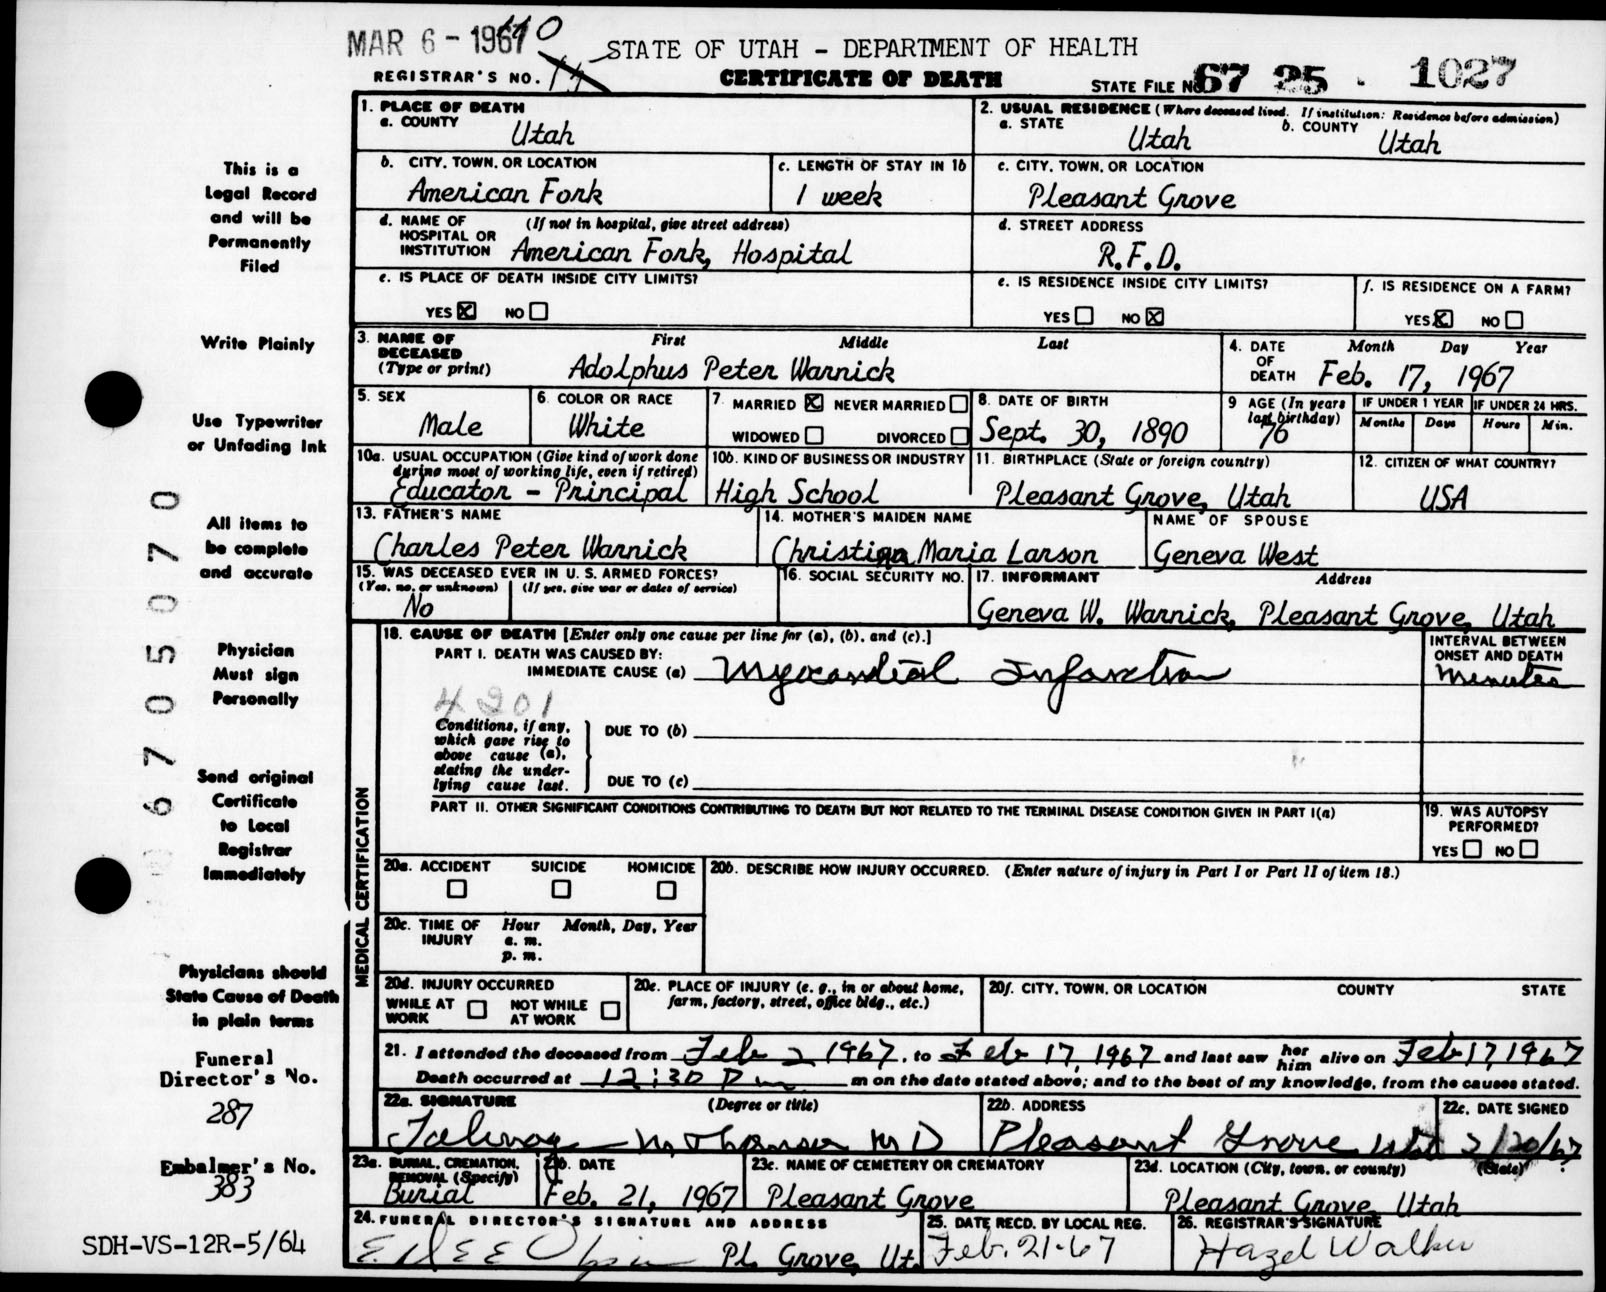 MAR 6 - 1967 40
STATE OF UTAH - DEPARTMENT OF HEALTH
REGISTRAR'S NO.
CERTIFICATE OF DEATH
STATE FILE NO. 67 25 - 1027
1. PLACE OF DEATH
a. COUNTY
Utah
2. USUAL RESIDENCE (Where deceased lived. If institution: Residence before admission)
a. STATE
Utah
b. COUNTY
Utah
b. CITY, TOWN, OR LOCATION
American Fork
c. LENGTH OF STAY IN 1b
1 week
c. CITY, TOWN, OR LOCATION
Pleasant Grove
d. NAME OF (If not in hospital, give street address)
HOSPITAL OR
INSTITUTION American Fork, Hospital
d. STREET ADDRESS
R.F.D.
e. IS PLACE OF DEATH INSIDE CITY LIMITS?
YES ☒ NO ☐
e. IS RESIDENCE INSIDE CITY LIMITS?
YES ☐ NO ☒
f. IS RESIDENCE ON A FARM?
YES ☒ NO ☐
3. NAME OF First Middle Last
DECEASED
(Type or print) Adolphus Peter Warnick
4. DATE Month Day Year
OF
DEATH Feb. 17, 1967
5. SEX
Male
6. COLOR OR RACE
White
7. MARRIED ☒ NEVER MARRIED ☐
WIDOWED ☐ DIVORCED ☐
8. DATE OF BIRTH
Sept. 30, 1890
9 AGE (In years
last birthday)
76
IF UNDER 1 YEAR
Months Days
IF UNDER 24 HRS.
Hours Min.
10a. USUAL OCCUPATION (Give kind of work done
during most of working life, even if retired)
Educator - Principal
10b. KIND OF BUSINESS OR INDUSTRY
High School
11. BIRTHPLACE (State or foreign country)
Pleasant Grove, Utah
12. CITIZEN OF WHAT COUNTRY?
USA
13. FATHER'S NAME
Charles Peter Warnick
14. MOTHER'S MAIDEN NAME
Christina Maria Larson
NAME OF SPOUSE
Geneva West
15. WAS DECEASED EVER IN U. S. ARMED FORCES?
(Yes, no, or unknown) (If yes, give war or dates of service)
No
16. SOCIAL SECURITY NO.
17. INFORMANT Address
Geneva W. Warnick, Pleasant Grove, Utah
18. CAUSE OF DEATH [Enter only one cause per line for (a), (b), and (c).]
PART I. DEATH WAS CAUSED BY:
IMMEDIATE CAUSE (a) Myocardial Infarction
INTERVAL BETWEEN
ONSET AND DEATH
Minutes
4201
Conditions, if any,
which gave rise to
above cause (a),
stating the under-
lying cause last.
DUE TO (b)
DUE TO (c)
PART II. OTHER SIGNIFICANT CONDITIONS CONTRIBUTING TO DEATH BUT NOT RELATED TO THE TERMINAL DISEASE CONDITION GIVEN IN PART I(a)
19. WAS AUTOPSY
PERFORMED?
YES ☐ NO ☐
MEDICAL CERTIFICATION
20a. ACCIDENT SUICIDE HOMICIDE
☐ ☐ ☐
20b. DESCRIBE HOW INJURY OCCURRED. (Enter nature of injury in Part I or Part II of item 18.)
20c. TIME OF Hour Month, Day, Year
INJURY a. m.
p. m.
20d. INJURY OCCURRED
WHILE AT ☐ NOT WHILE ☐
WORK AT WORK
20e. PLACE OF INJURY (e. g., in or about home,
farm, factory, street, office bldg., etc.)
20f. CITY, TOWN, OR LOCATION COUNTY STATE
21. I attended the deceased from Feb 2 1967, to Feb 17, 1967 and last saw her him alive on Feb 17, 1967
Death occurred at 12:30 P m m on the date stated above; and to the best of my knowledge, from the causes stated.
22a. SIGNATURE (Degree or title)
M D
22b. ADDRESS
Pleasant Grove Utah
22c. DATE SIGNED
2/20/67
23a. BURIAL, CREMATION,
REMOVAL (Specify)
Burial
23b. DATE
Feb. 21, 1967
23c. NAME OF CEMETERY OR CREMATORY
Pleasant Grove
23d. LOCATION (City, town, or county) (State)
Pleasant Grove, Utah
24. FUNERAL DIRECTOR'S SIGNATURE AND ADDRESS
Pl. Grove, Ut.
25. DATE RECD. BY LOCAL REG.
Feb. 21-67
26. REGISTRAR'S SIGNATURE
Hazel Walker
This is a
Legal Record
and will be
Permanently
Filed
Write Plainly
Use Typewriter
or Unfading Ink
All items to
be complete
and accurate
Physician
Must sign
Personally
Send original
Certificate
to Local
Registrar
Immediately
Physicians should
State Cause of Death
in plain terms
Funeral
Director's No.
287
Embalmer's No.
383
SDH-VS-12R-5/64
67 05070